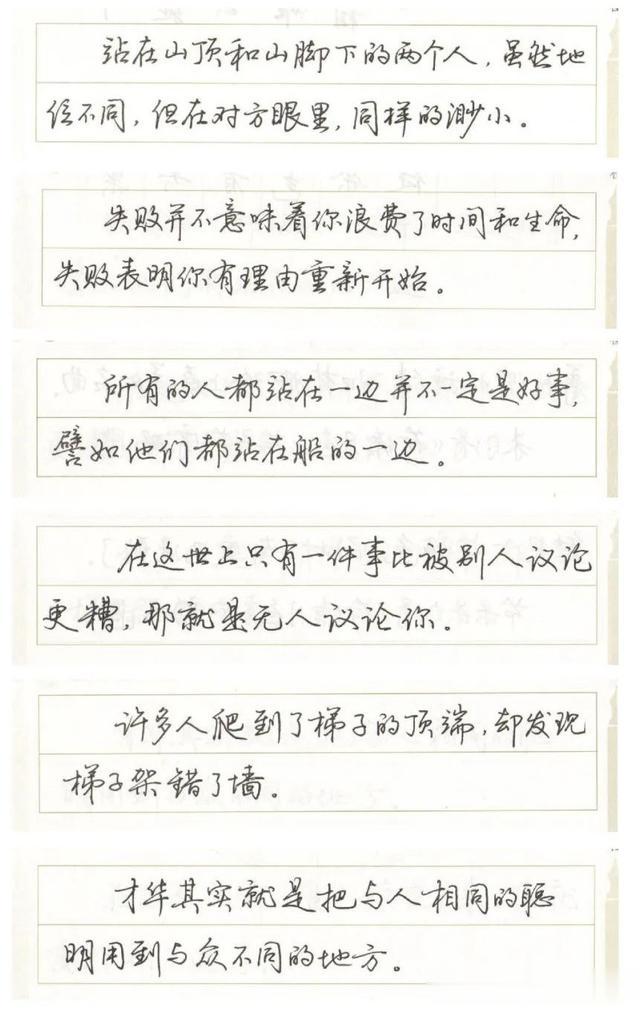 站在山顶和山脚下的两个人，虽然地
位不同，但在对方眼里，同样的渺小。
失败并不意味着你浪费了时间和生命，
失败表明你有理由重新开始。
所有的人都站在一边并不一定是好事，
譬如他们都站在船的一边。
在这世上只有一件事比被别人议论
更糟，那就是无人议论你。
许多人爬到了梯子的顶端，却发现
梯子架错了墙。
才华其实就是把与人相同的聪
明用到与众不同的地方。